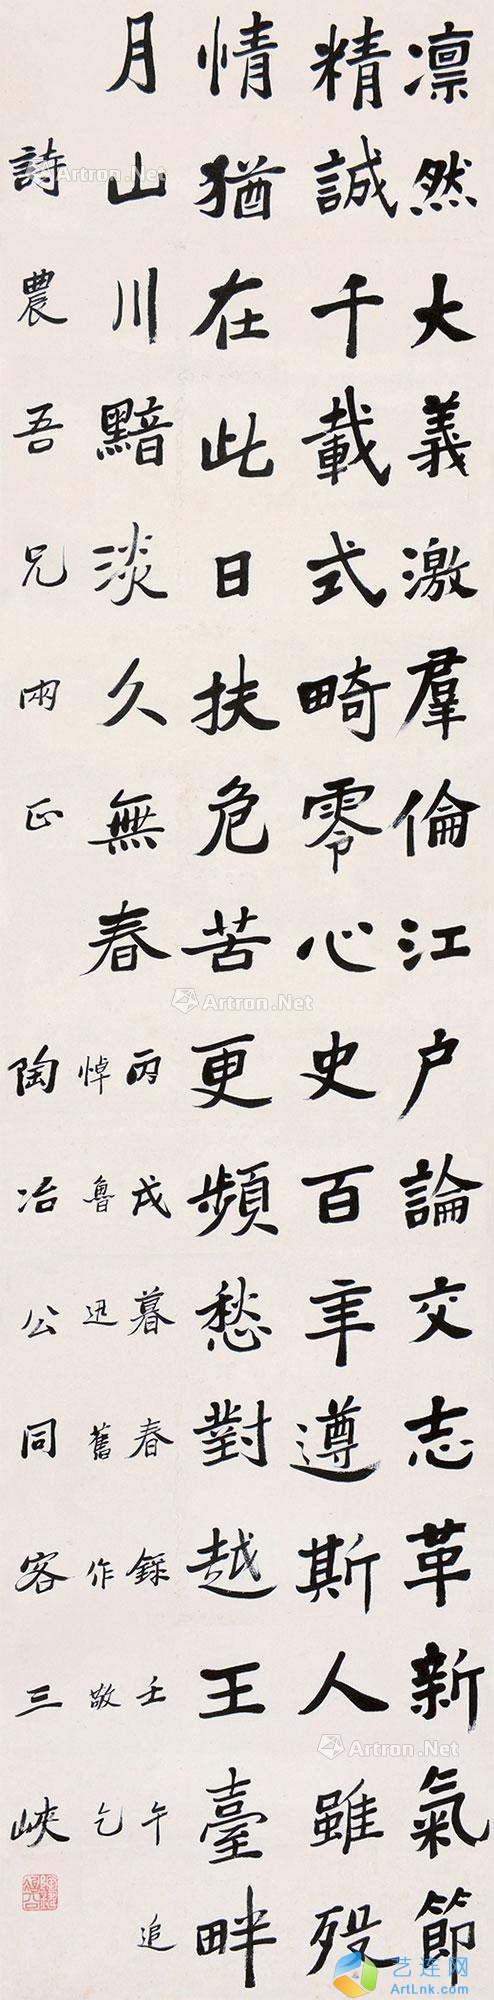 凛然大義激羣倫江户論交志革新氣節
精誠千載式畸零心史百年遵斯人雖殁
情猶在此日扶危苦更頻愁對越王臺畔
月山川黯淡久無春
丙戌暮春錄壬午追
悼魯迅舊作敬乞
詩農吾兄兩正
陶冶公同客三峽
Artron.Net
Artron.Net
Artron.Net
Artron.Net
艺连网
ArtLnk.com